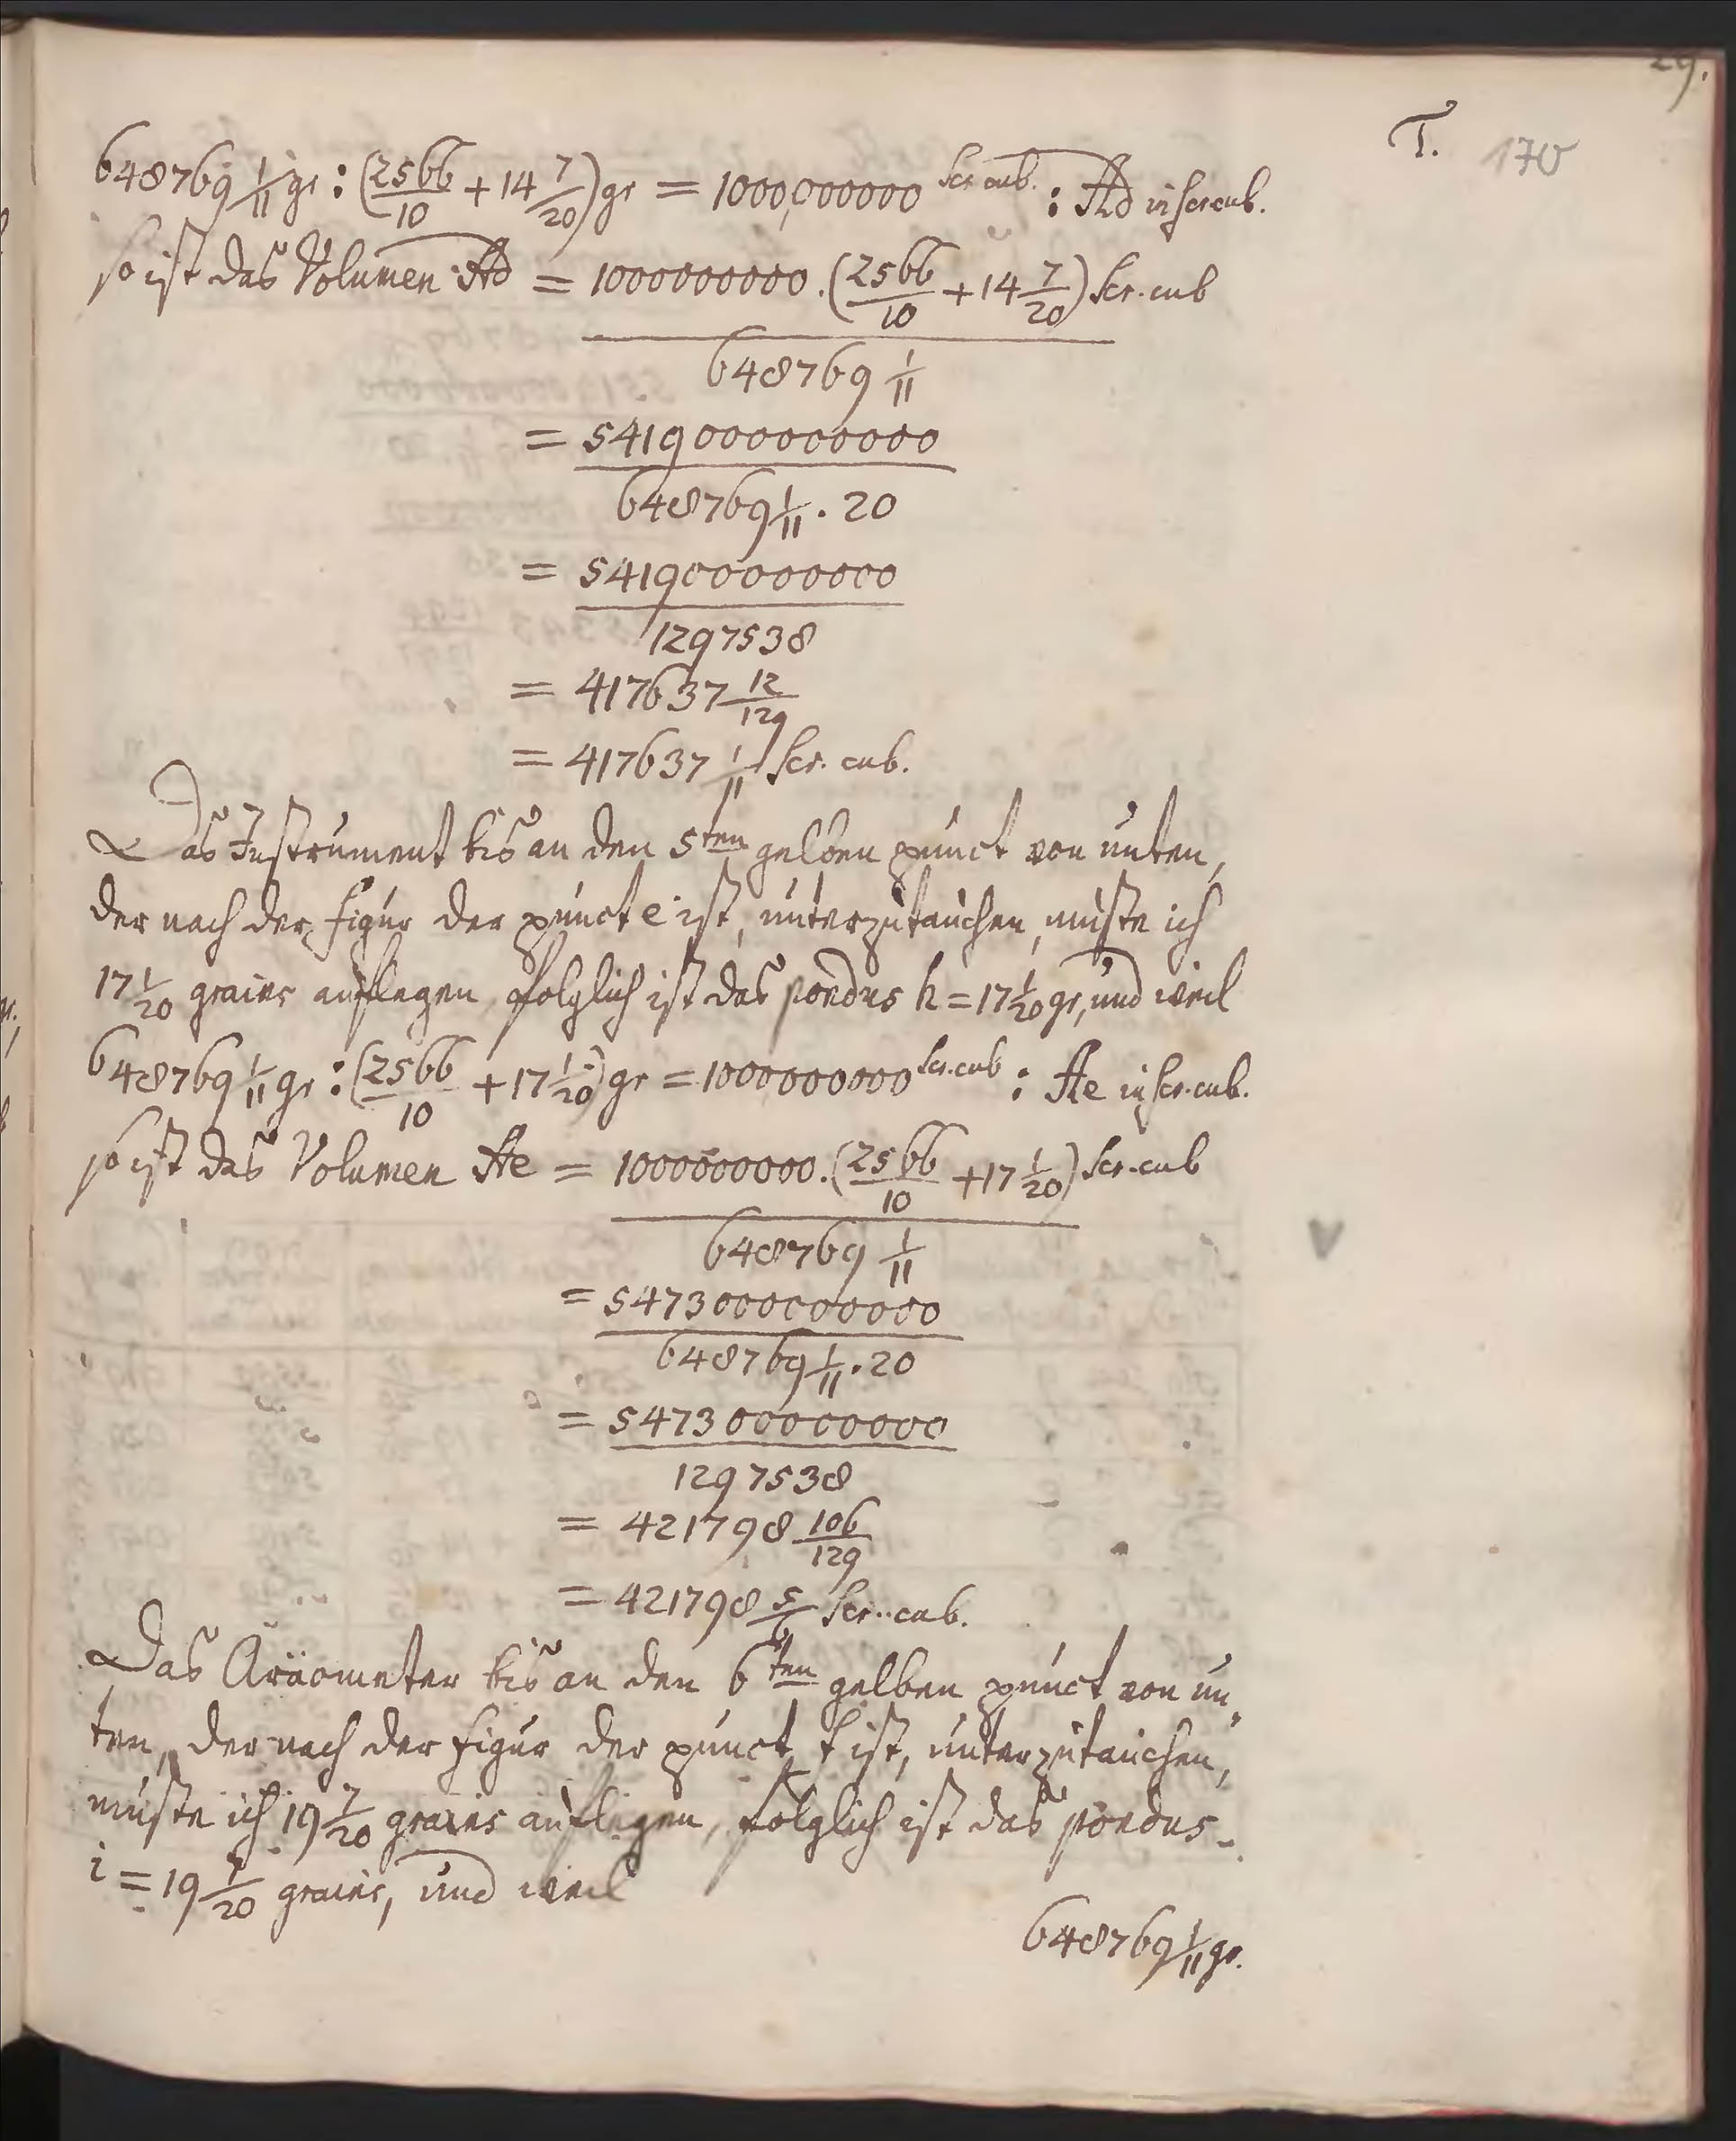 29.
T. 170
648769 1/11 gr : (2566/10 + 14 7/20) gr = 1000,000000 Scr. cub. : Ad in Scr cub.
so ist das Volumen Ad = 1000000000 . (2566/10 + 14 7/20) Scr. cub
648769 1/11
= 5419000000000
648769 1/11 . 20
= 541900000000
1297538
= 417637 12/129
= 417637 1/11 Scr. cub.
Das Instrument bis an den 5ten gelben punct von unten,
der nach der figur der punct e ist, unterzutauchen, muste ich
17 1/20 grains auflegen, folglich ist das pondus h = 17 1/20 gr, und weil
648769 1/11 gr : (2566/10 + 17 1/20) gr = 1000000000 Scr. cub : Ae in Scr. cub.
so ist das Volumen Ae = 1000000000 . (2566/10 + 17 1/20) Scr. cub
648769 1/11
= 5473000000000
648769 1/11 . 20
= 547300000000
1297538
= 421798 106/129
= 421798 5/6 Scr. cub.
Das Aräometer bis an den 6ten gelben punct von un,
ten, der nach der figur der punct f ist, unterzutauchen,
muste ich 19 7/20 grains auflegen, folglich ist das pondus
i = 19 7/20 grains, und weil
648769 1/11 gr.